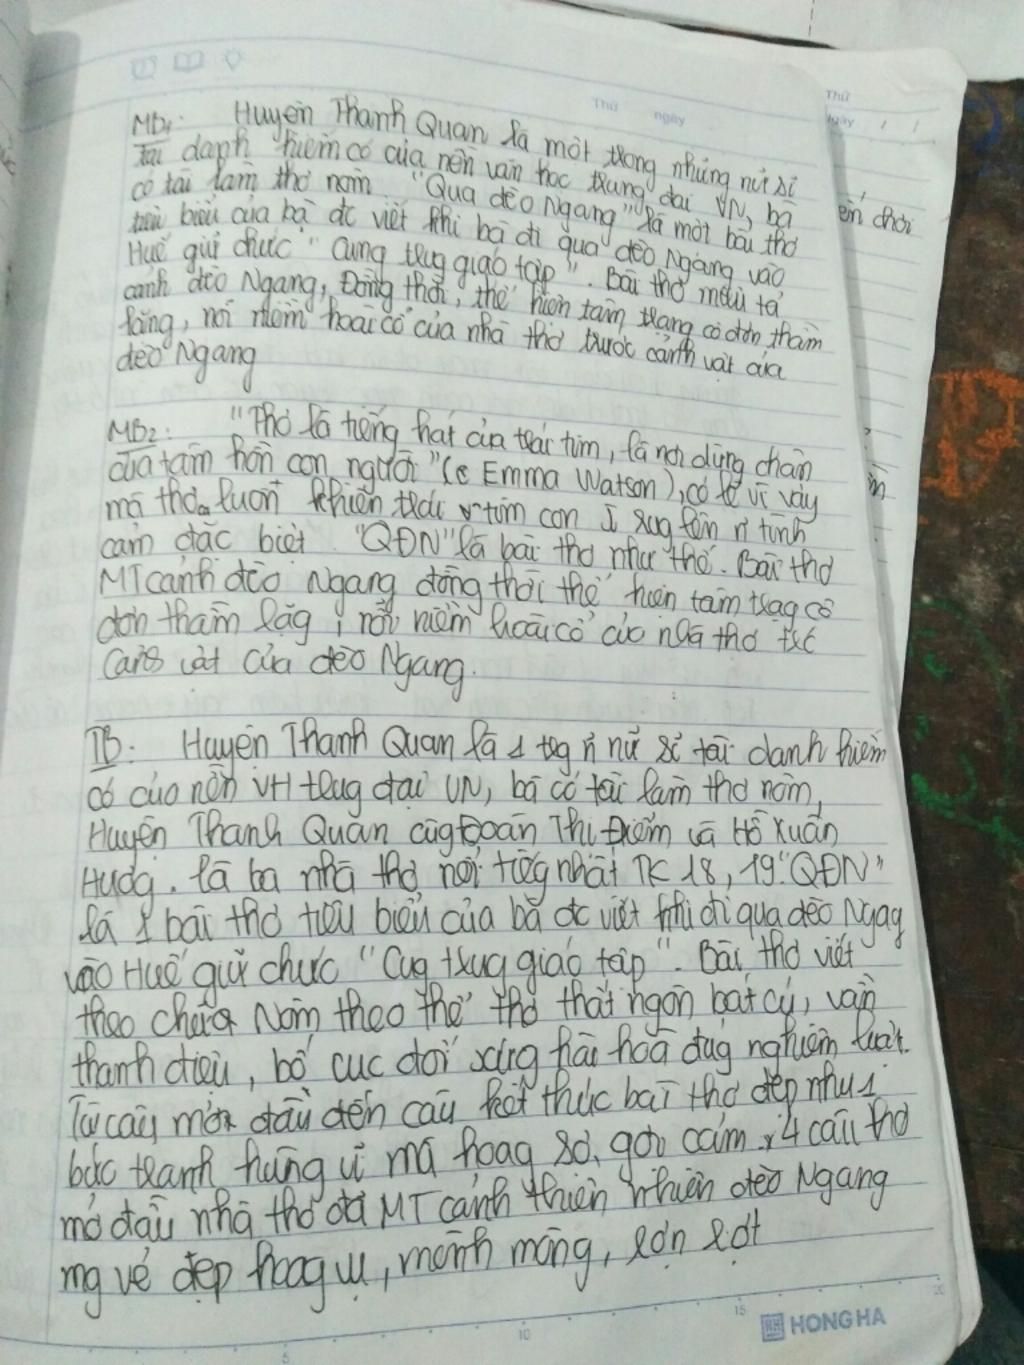 Thứ ngày
Thứ
ngày / /
MB1: Huyện Thanh Quan là một trong những nữ sĩ
tài danh hiếm có của nền văn học trung đại VN, bà
có tài làm thơ nôm "Qua đèo Ngang" là một bài thơ
tiêu biểu của bà đc viết khi bà đi qua đèo Ngang vào
Huế giữ chức "Cung trug giáo tập". Bài thơ miêu tả
cảnh đèo Ngang, Đồng thời, thể hiện tâm trạng cô đơn thầm
lặng, nỗi niềm hoài cổ của nhà thơ trước cảnh vật của
đèo Ngang
MB2: "Thơ là tiếng hát của trái tim, là nơi dừng chân
của tâm hồn con người" (c Emma Watson), có lẽ vì vậy
mà thơ luôn khiến trái tim con rug lên n tình
cảm đặc biệt. "QĐN" là bài thơ như thế. Bài thơ
MT cảnh đèo Ngang đồng thời thể hiện tâm trạg cô
đơn thầm lặg, nỗi niềm hoài cổ của nhà thơ trc
cảnh vật của đèo Ngang.
TB: Huyện Thanh Quan là 1 trg n nữ sĩ tài danh hiếm
có của nền VH trug đại VN, bà có tài làm thơ nôm,
Huyện Thanh Quan cùg Đoàn Thị Điểm và Hồ Xuân
Hươg. là ba nhà thơ nổi tiếg nhất TK 18, 19. "QĐN"
là 1 bài thơ tiêu biểu của bà đc viết khi đi qua đèo Ngag
vào Huế giữ chức "Cug trug giáo tập". Bài thơ viết
theo chữ Nôm theo thể thơ thất ngôn bát cú, vần
thanh điệu, bố cục đối xứng hài hoà đúg nghiêm luật.
Từ câu mở đầu đến câu kết thúc bài thơ đẹp như 1
bức tranh hùng vĩ mà hoag sơ, gợi cảm. 4 câu thơ
mở đầu nhà thơ đã MT cảnh thiên nhiên đèo Ngang
mg vẻ đẹp hoag vu, mênh mông, rợn rợt
5 10 15 20
HONG HA